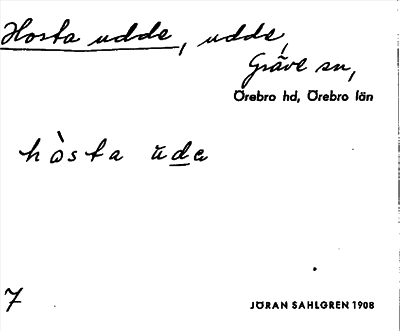 Hosta udde, udde,
Gräve sn,
Örebro hd, Örebro län
hòsta ŭde
7
JÖRAN SAHLGREN 1908